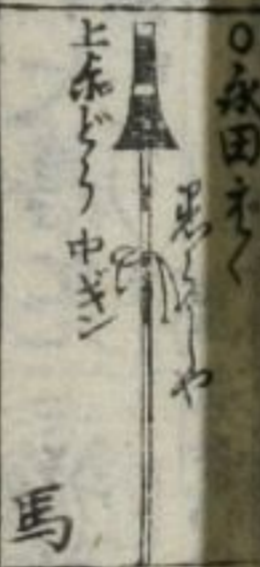 〇永田まち
黒らしや
上赤どう 中ギン
馬